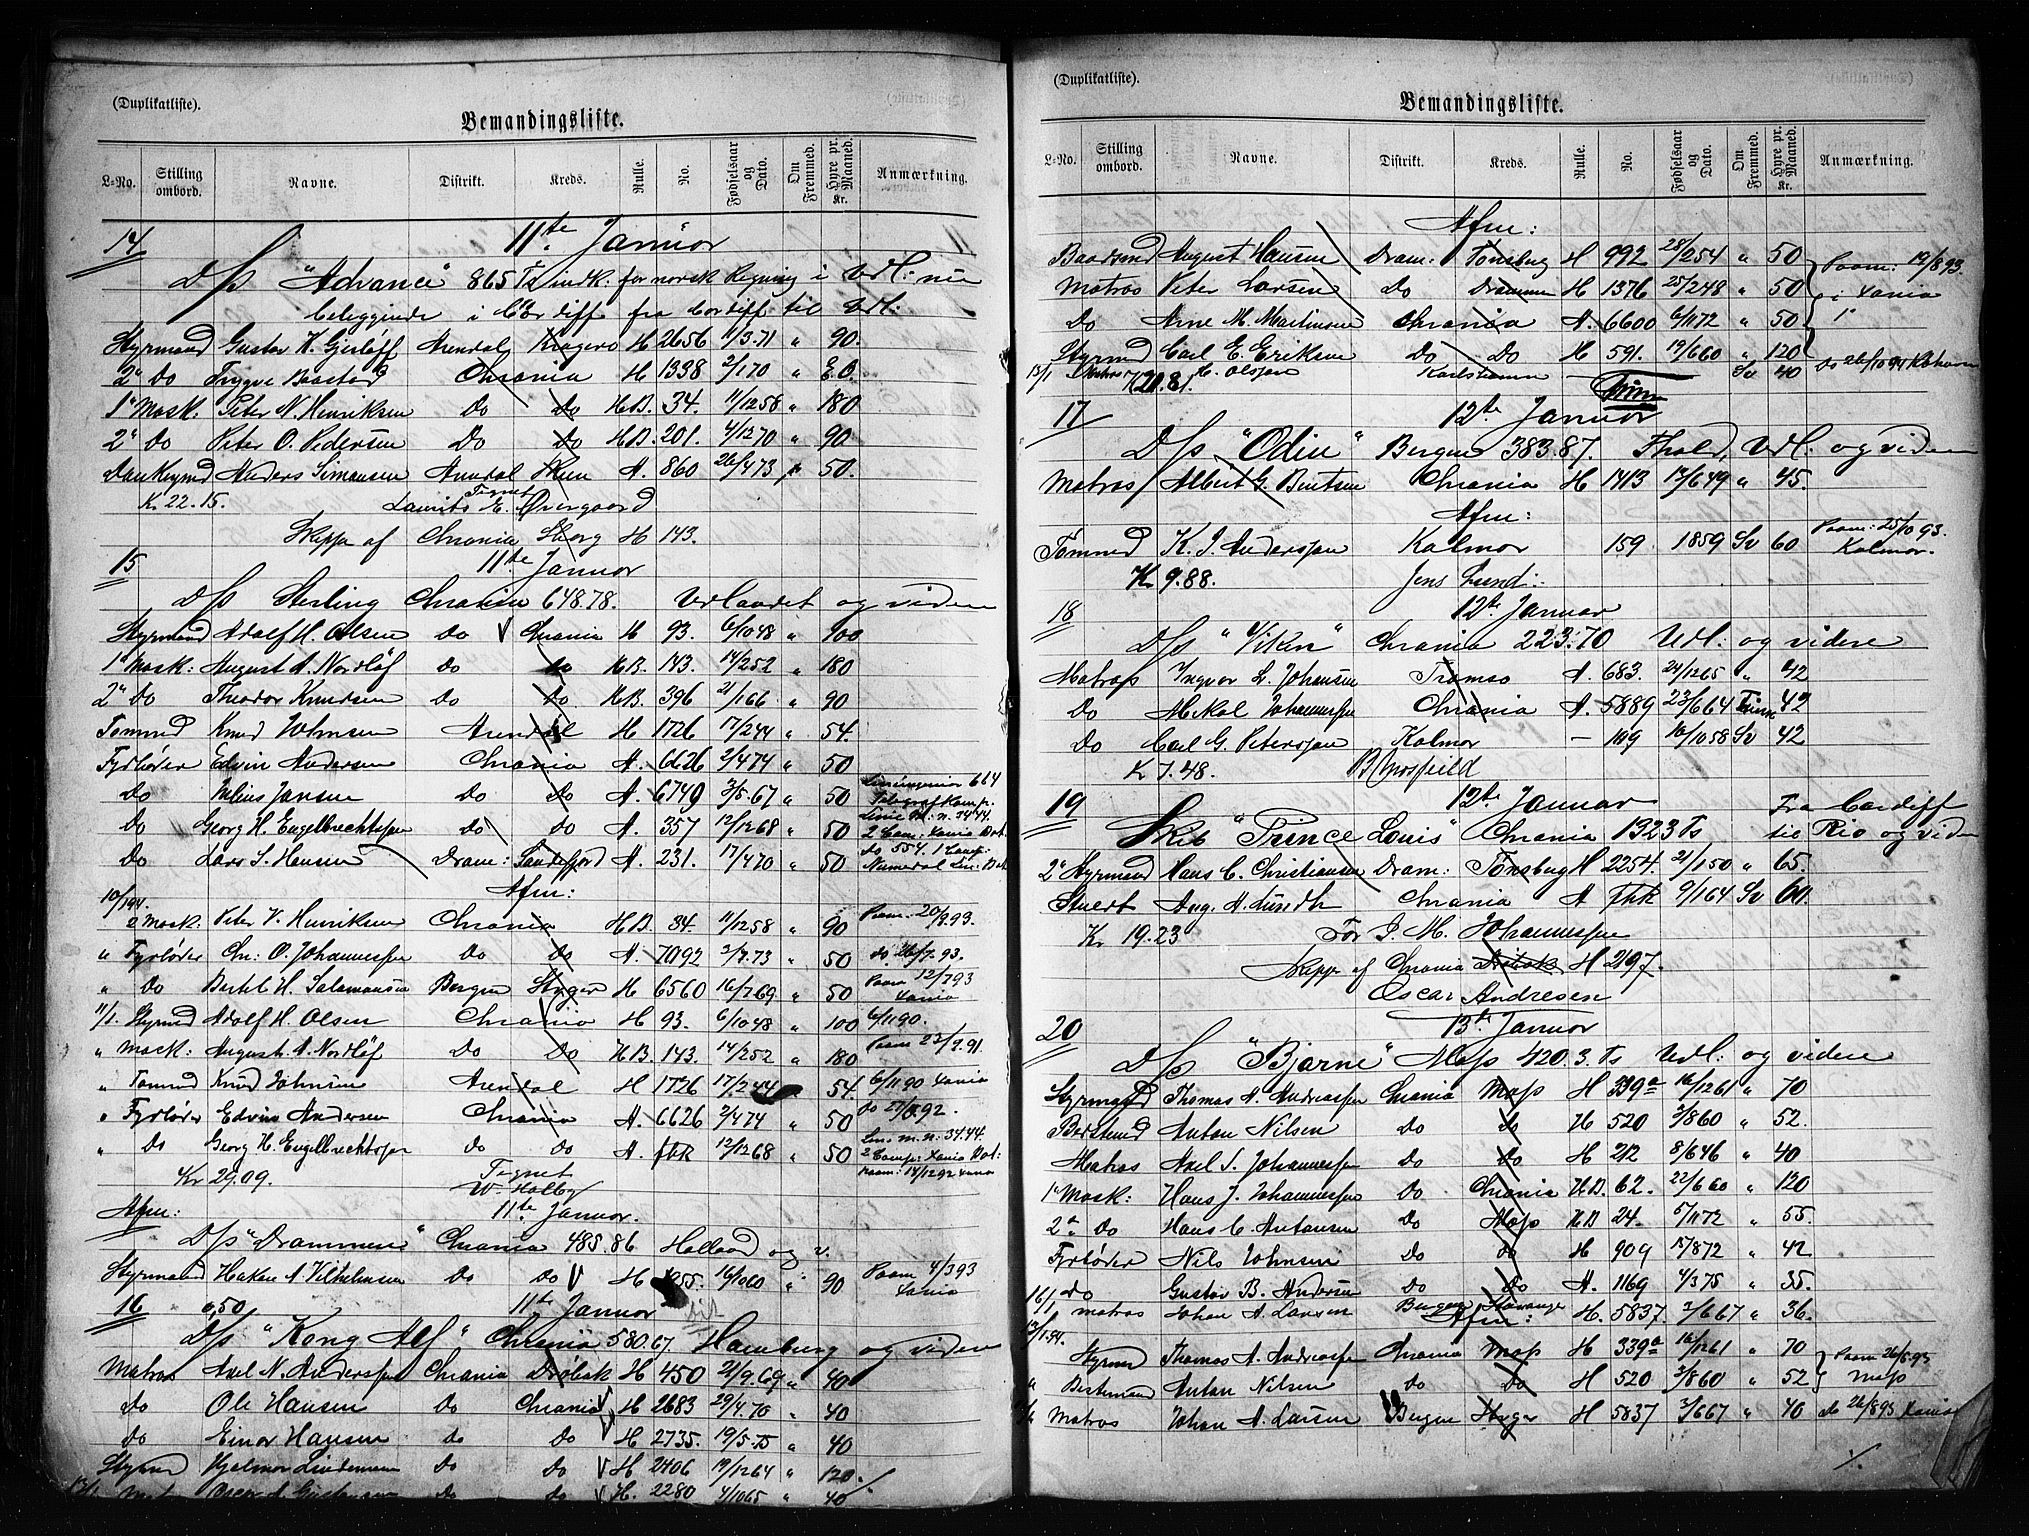 (Duplikatliste).
Bemandingsliste.
L-No. Stilling ombord. Navne. Distrikt. Kreds. Rulle. No. Fødselsaar og Dato. Om Fremmed. Hyre pr. Maaned. Kr. Anmærkning.
14 11te Januar
D/s "Advance" 865 Ts indk: for norsk Regning i Udl: nu
beliggende i Cardiff fra Cardiff til Udl:
Styrmand Gustav K. Gjerløff Arendal Kragerø H 2656 1/3.71 " 90.
2" Do Trygve Baastad Chrania H 1338 2/170 " £ 0.
1" Mask. Peter N. Henriksen Do Do H.B. 34. 11/1258 " 180
2" Do Peter O. Pedersen Do Do H.B. 201. 4/1270 " 90
Dankeymd Anders Simonsen Arendal Skien A. 860 26/473 " 50.
Kr. 22.15. Tegnet
Laurits E. Overgaard
Skipper af Chrania H 143.
15 11te Januar
D/s Sterling Chrania 648.78. Udlandet og videre
Styrmand Adolf H. Olsen Do Chrania H 93. 6/1048 " 100
1" Mask: August A. Nordløf Do do H.B. 143. 14/252 " 180
2" Do Theodor Knudsen Do Do H.B. 396 21/166 " 90
Tømmd Knud Johnsen Arendal H 1726 17/244 " 54.
Fyrbøder Edvin Andersen Chrania A. 6626 2/474 " 50
Do Julius Jansen Do Do A. 6749 3/5.67 " 50
Do Georg H. Engelbrechtsen Do Do A. 357 12/1268 " 50
Do Lars S. Hansen Dram: Sandefjord A. 231. 17/470 " 50
Afm:
10/194.
2 Mask: Peter N. Henriksen Chrania H.B. 34. 11/1258 " 90 Paam. 20/9.93.
" Fyrbøder Chr. O. Johannessen Do Do A. 7092 2/7.73 " 50 do 26/7.93.
" Do Bertel H. Salamonsen Bergen Stvger H 6560 16/769 " 50 Paam 12/793 Xania
11/1. Styrmd Adolf H. Olsen Chrania H 93. 6/1048 " 100 6/1190.
" Mask: August A. Nordløf Do Do H.B. 143. 14/252 " 180 Paam 23/9.91.
" Tømmd Knud Johnsen Arendal H 1726 17/244 " 54. 6/1190 Xania
" Fyrbøder Edvin Andersen Chrania A. 6626 2/474 " 50
" Do Georg H. Engelbrechtsen do do A. fbk 12/1268 " 50
Kr 29.09. Tegnet
W. Holby
Afm: 11te Januar.
D/s "Drammen" Chrania 485.86 Holland og v.
Styrmand Hakon A Vilhelmsen Do Do H 90 Paam 4/393 Xania
16 0,50 11te Januar
D/s "Kong Alf" Chrania 580.67. Hamburg og videre
Matros Axel N. Anderssen Chrania Drøbak H 450 21/9.69 " 40
do Ole Hansen Do Chrania H 2683 29/4.70 " 40
do Einar Hansen do Do H 2735. 19/5.75 " 40
Styrmd Hjalmar Lindeman Do Do H 2406 19/1264 " 120
Mat Oscar A. Gustavsen Do Do H. 2280 4/1065 " 40
(Duplikatliste).
Bemandingsliste.
L-No. Stilling ombord. Navne. Distrikt. Kreds. Rulle. No. Fødselsaar og Dato. Om Fremmed. Hyre pr. Maaned. Kr. Anmærkning.
Afm:
Baadsmd August Hansen Dram: Tønsberg H 992 28/254 " 50 Paam: 19/8 93.
Matros Peter Larsen Do Drammen H 1376 25/248 " 50 i Xania
Do Arne M. Martinsen Chrania A. 6600 6/1172 " 50
Styrmd Carl E. Eriksen Do Do H 591. 19/660 " 120
13/1 C. Olsson Karlshamn — Sv 40
Kr 21.81.
17 12te Januar
D/s "Odin" Bergen 383.87. Udl. og videre
Matros Albert G. Berntsen Chrania H 1413 17/649 " 45.
Afm:
Tømmd K. J. Andersson Kalmar 159. 1859 Sv 60 Paam: 25/10 93. Kalmar.
Kr 9.88. Jens Lund.
18 12te Januar
D/s "Viken" Chrania 223.70 Udl: og videre
Matros Ingvar L. Johansen Tromsø A. 683. 24/1265 " 42
Do Mikal Johannessen Chrania A. 5889 23/664 42
Do Carl G. Petersson Kalmar — 109 16/1058 Sv 42
Kr 7.48.
19 12te Januar Fra Cardiff
Skib "Prince Louis" Chrania 1923 Ts til Rio og vider
2" Styrmand Hans C. Christiansen Dram: Tønsberg H 2254. 21/150 " 65.
Stuert Aug. A. Lundh Chrania A fbk 9/164 Sv 60.
Kr 19.23 For J. M. Johannessen
Skipp. af Chrania Drøbak H 297.
Oscar Andresen
20 13te Januar
D/s "Bjarne" Moss 420.3 Ts Udl: og videre
Styrmand Thomas A. Andreassen Chrania Moss H 339a 16/1261 " 70
Bestmd Anton Nilsen do do H 520 3/860 " 52.
Matros Axel S. Johannessen Do Do H 212 8/646 " 40
1" Mask: Hans J. Johannessen Do Chrania H.B. 62. 22/660 " 120
2" Do Hans C. Antonsen Do Moss H.B 24. 5/1172 " 55.
Fyrbøder Nils Johnsen Do do H 909 15/872 " 42
do Gustav B. Andersen Do Do A. 1169 4/375 " 35.
16/1 Matros Johan A. Larsen Bergen Stavanger H. 5837. 2/667 " 36.
13/1.94. Afm:
Styrmd Thomas A. Andreassen Chrania Moss H 339a 16/1261 " 70
" Bestemand Anton Nilsen Do Do H 520 3/860 " 52 Moss
Matros Johan A. Larsen Bergen Stvger H 5837 2/667 " 40 do 26/893 Xania